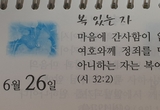 복 있는 자
마음에 간사함이 없
여호와께 정죄를
아니하는 자는 복이
(시 32:2)
6월 26일